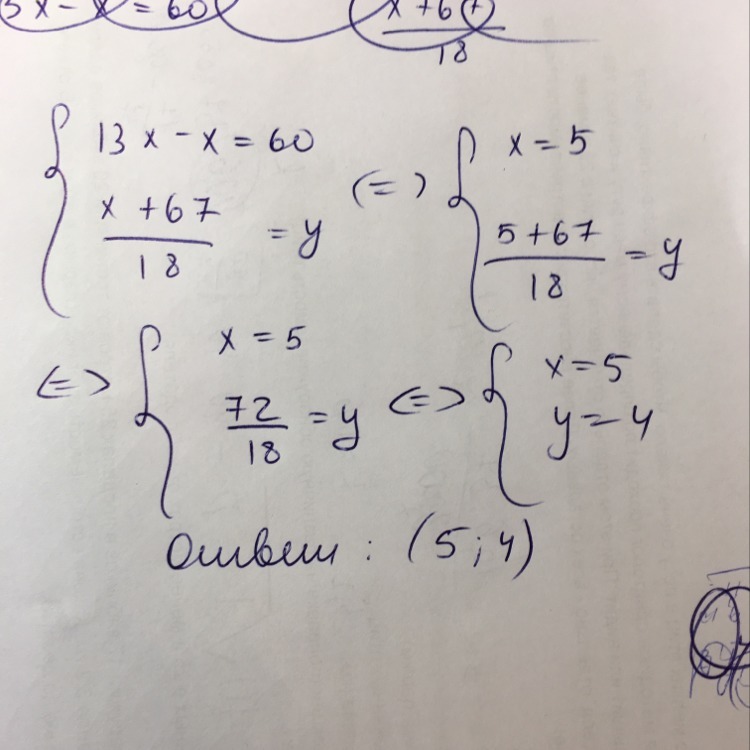 x - x = 60
x + 67
18
{ 13 x - x = 60
x + 67 / 18 = y
(=) { x = 5
5 + 67 / 18 = y
<=> { x = 5
72 / 18 = y
<=> { x = 5
y = 4
Ответ : (5; 4)